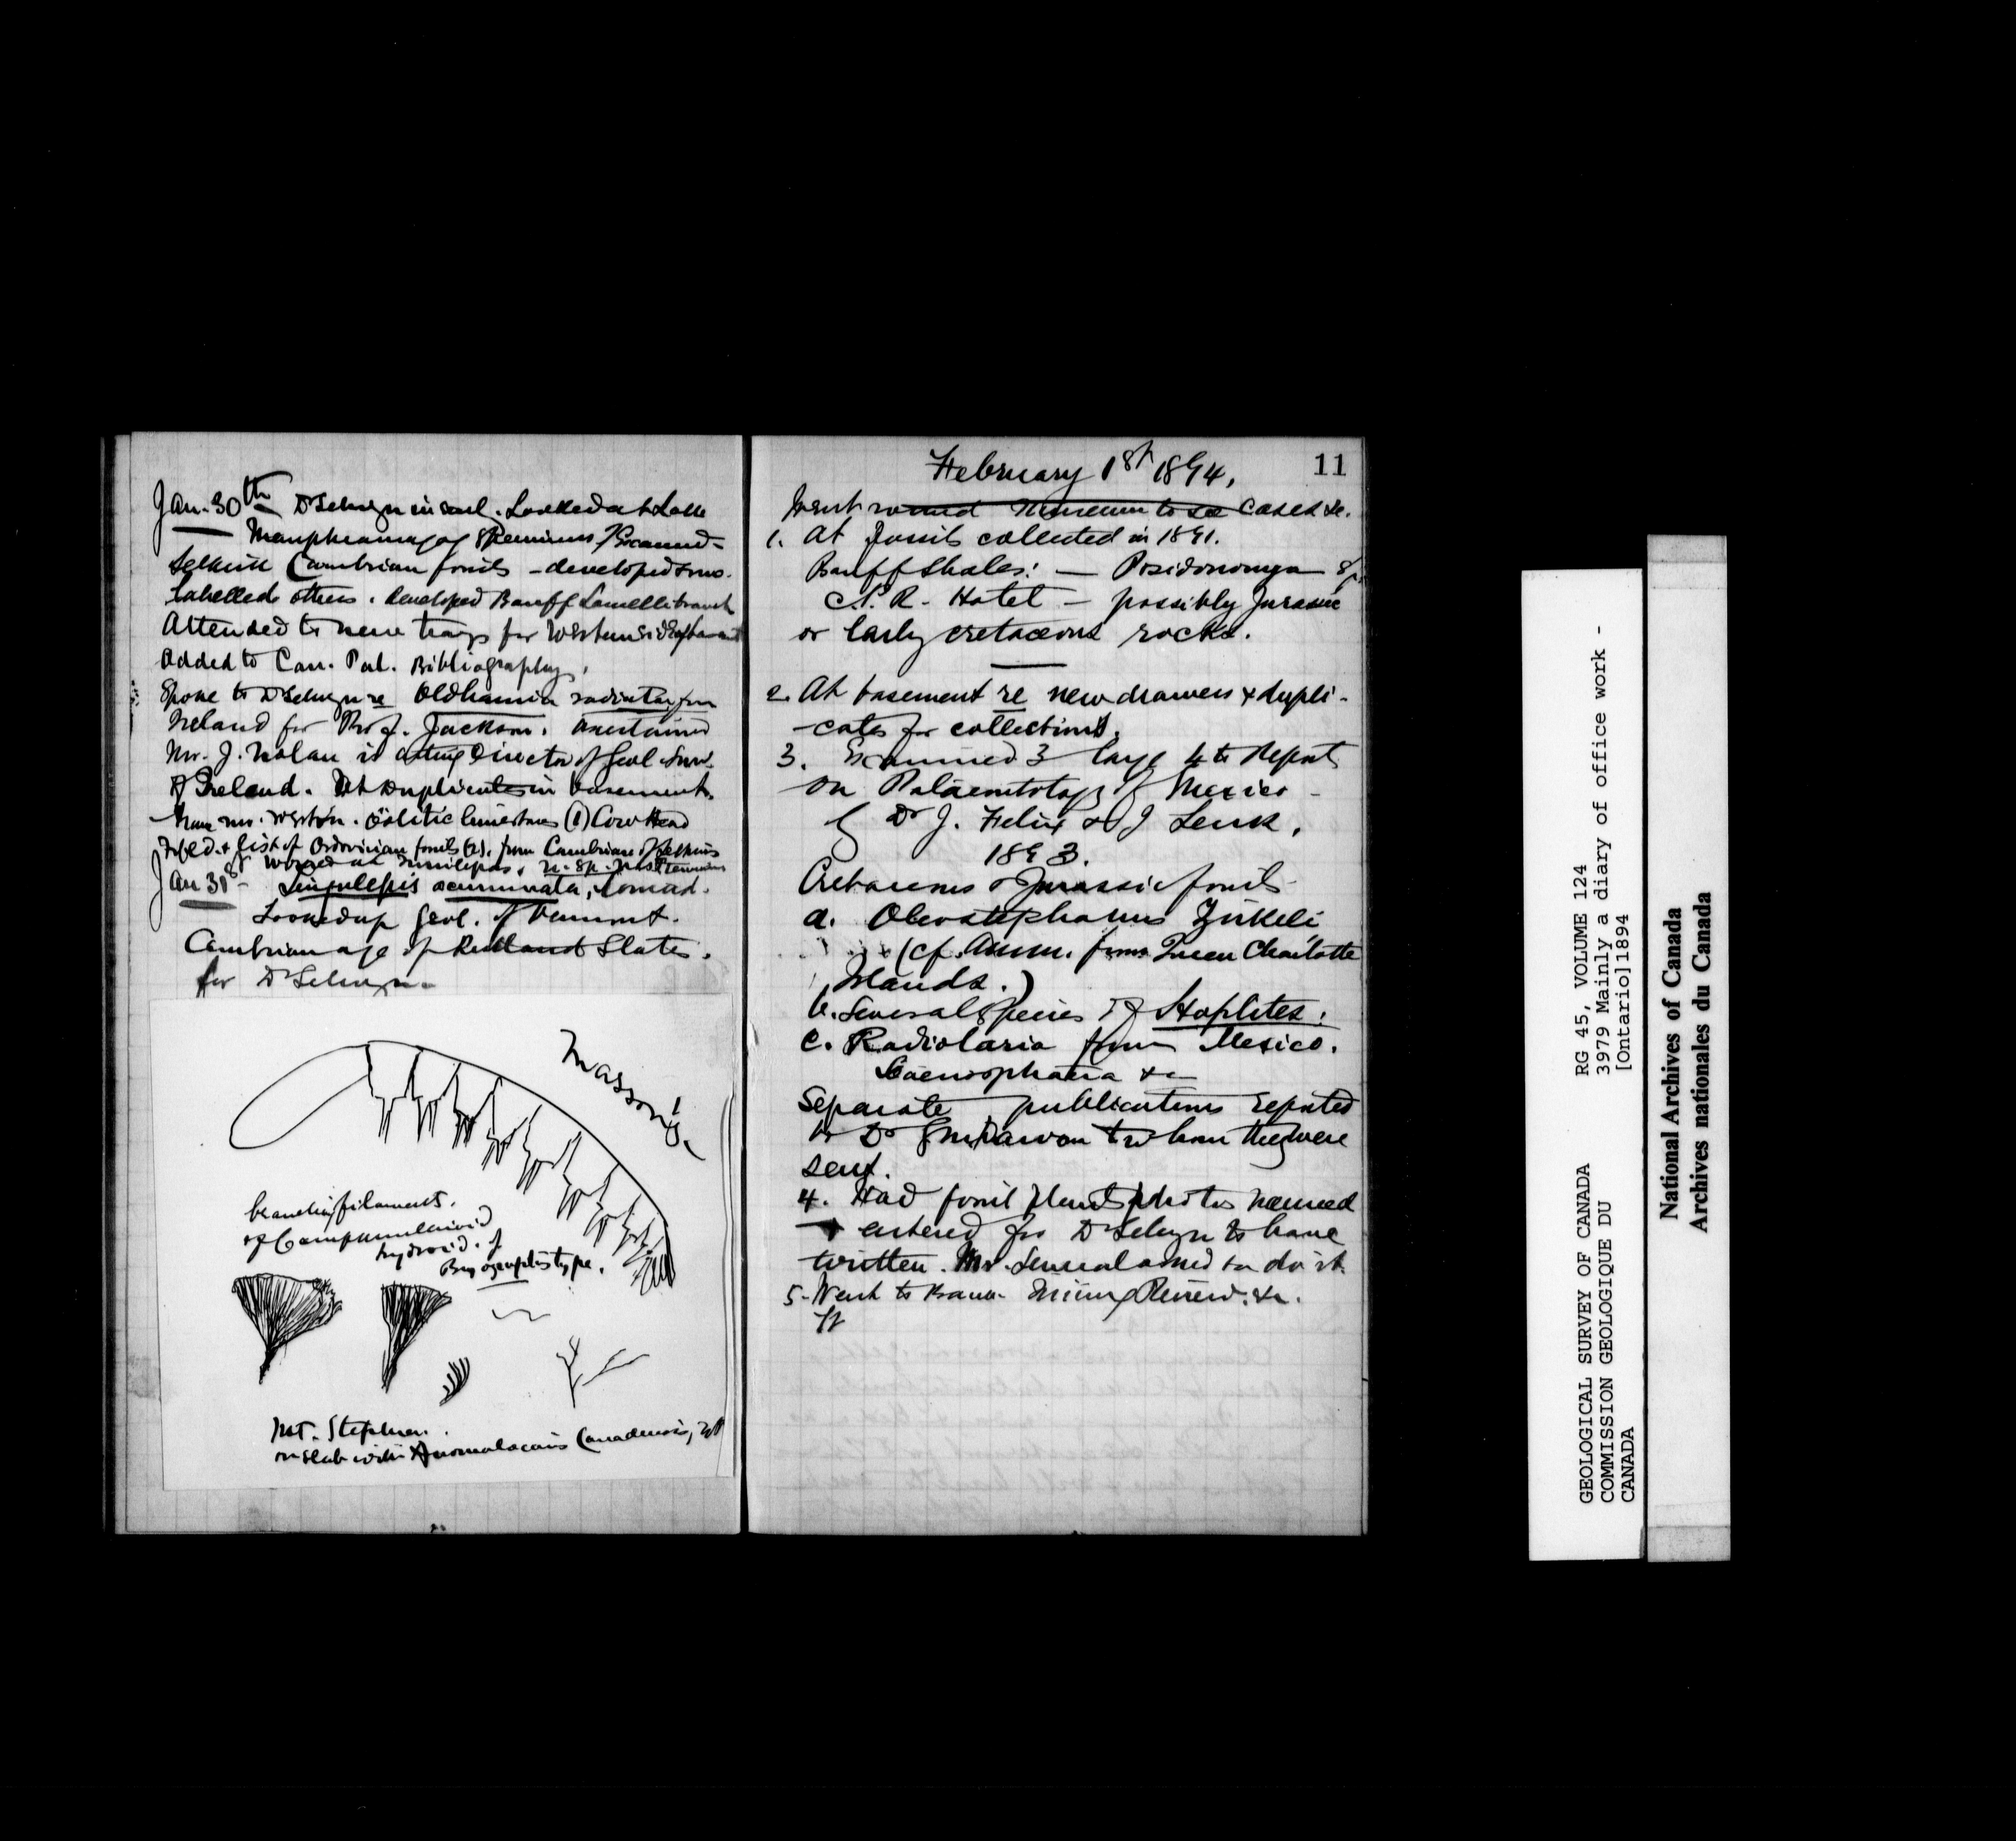 Jan. 30th Dr Selwyn in and. Looked at Lake
specimens Examined
Selkirk Cambrian fossils - developed some.
labelled others. developed Banff Lamellibranch
Attended to new trays for
Added to Can. Pal. Bibliography.
Spoke to Dr Selwyn re Oldhamia radiata from
Ireland for Prof. Jackson. Ascertained
Mr. J. Nolan is acting Director of Geol. Surv.
of Ireland. duplicates in basement.
Mr. Weston. oolitic limestones (1) Cow Head
Nfld. & list of Ordovician fossils (2). from Cambrian of Selkirks
Jan 31st Worked at n. sp.
Lingulepis acuminata, Conrad.
Looked up Geol. of Vermont.
Cambrian age of Rutland Slates.
for Dr Selwyn.
branching filaments.
of Campanularioid
hydroid. of
type.
Mt. Stephen.
on slab with Anomalocaris Canadensis, Wh
11
February 1st 1894.
Went round Museum to see cases &c.
1. At fossils collected in 1891.
Banff Shales: — Posidonomya sp.
C.P.R. Hotel — possibly Jurassic
or early cretaceous rocks.
2. At basement re new drawers & dupli-
-cates for collections.
3. Examined 3 large 4to Reports
on Palaeontology of Mexico -
by Dr J. Felix & J Lenk,
1893.
Cretaceous & Jurassic fossils
a. Olcostephanus Zirkeli
(cf. Amm. from Queen Charlotte
Islands.)
b. Several species of Hoplites.
c. Radiolaria from Mexico.
&c
Separate publications reported
to Dr G M Dawson to whom they were
sent.
4. Had fossil plants photos named
& entered for Dr Selwyn to have
written. Mr. Senecal asked to do it.
5. Went to Mining Review. &c.
GEOLOGICAL SURVEY OF CANADA
COMMISSION GEOLOGIQUE DU
CANADA
RG 45, VOLUME 124
3979 Mainly a diary of office work -
[Ontario]1894
National Archives of Canada
Archives nationales du Canada